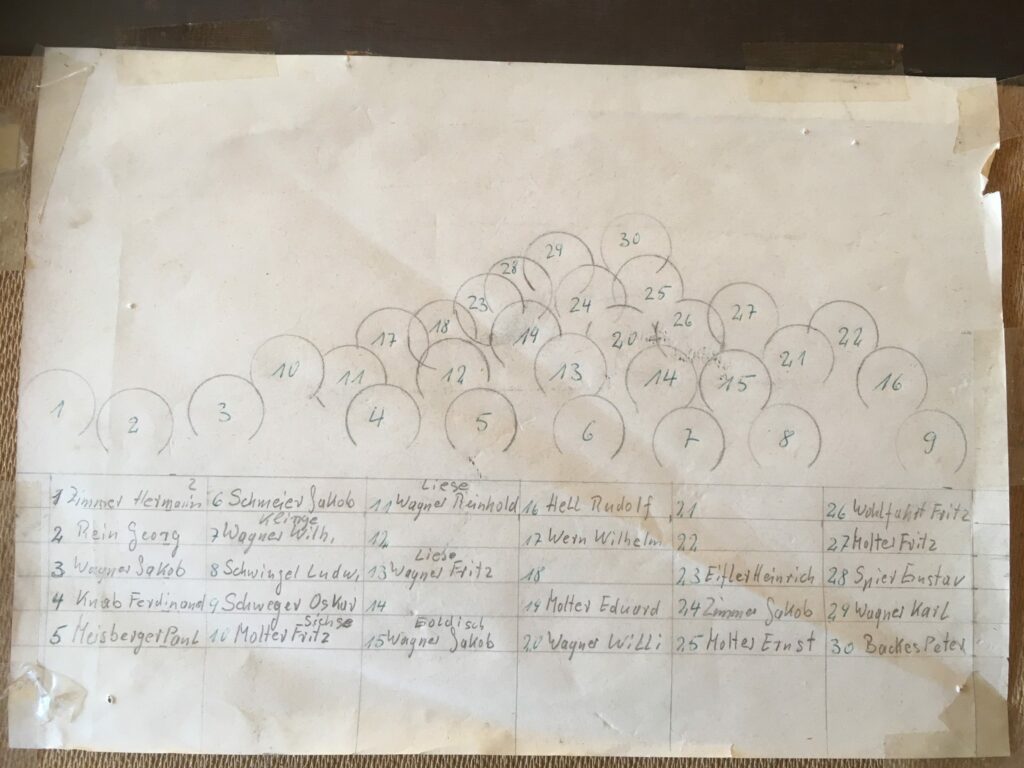 30
29
28
25
23
24
27
18
19
20
26
22
17
21
10
11
12
13
14
15
16
1
2
3
4
5
6
7
8
9
2 Liese
1 Zimmer Hermann 6 Schmeier Jakob 11 Wagner Reinhold 16 Hell Rudolf 21 26 Wohlfahrt Fritz
Klinge
2 Rein Georg 7 Wagner Wilh. 12 17 Wern Wilhelm 22 27 Molter Fritz
Liese
3 Wagner Jakob 8 Schwingel Ludw. 13 Wagner Fritz 18 23 Eifler Heinrich 28 Spier Gustav
4 Knab Ferdinand 9 Schweger Oskar 14 19 Molter Eduard 24 Zimmer Jakob 29 Wagner Karl
Goldisch
5 Meisberger Paul 10 Molter Fritz 15 Wagner Jakob 20 Wagner Willi 25 Molter Ernst 30 Backes Peter